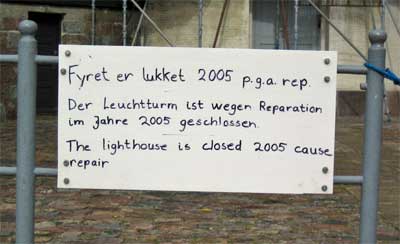 Fyret er lukket 2005 p.g.a. rep.
Der Leuchtturm ist wegen Reparation
im Jahre 2005 geschlossen.
The lighthouse is closed 2005 cause
repair